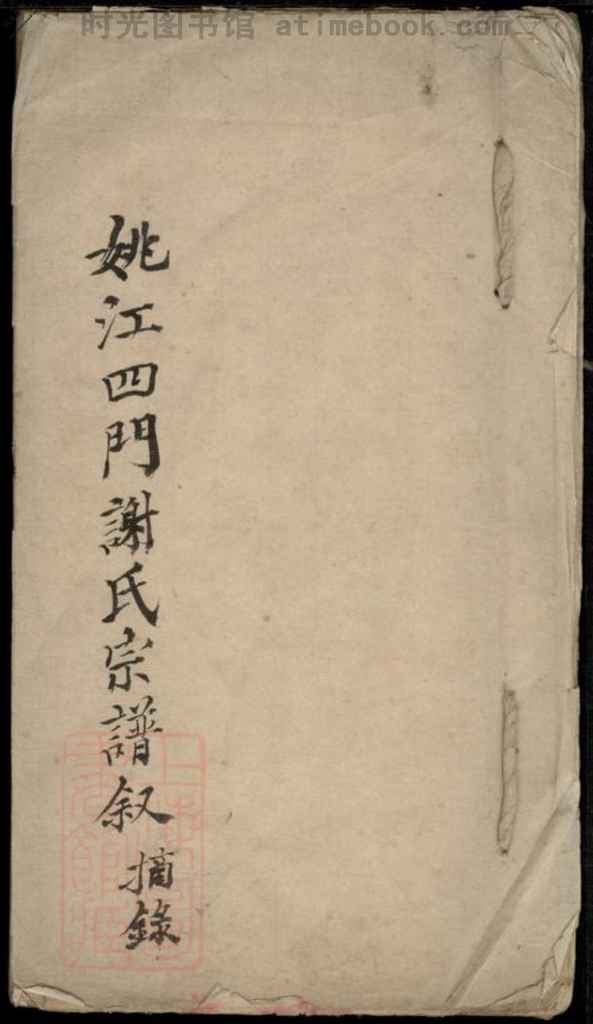 时光图书馆 atimebook.com
姚江四門謝氏宗譜叙
摘錄